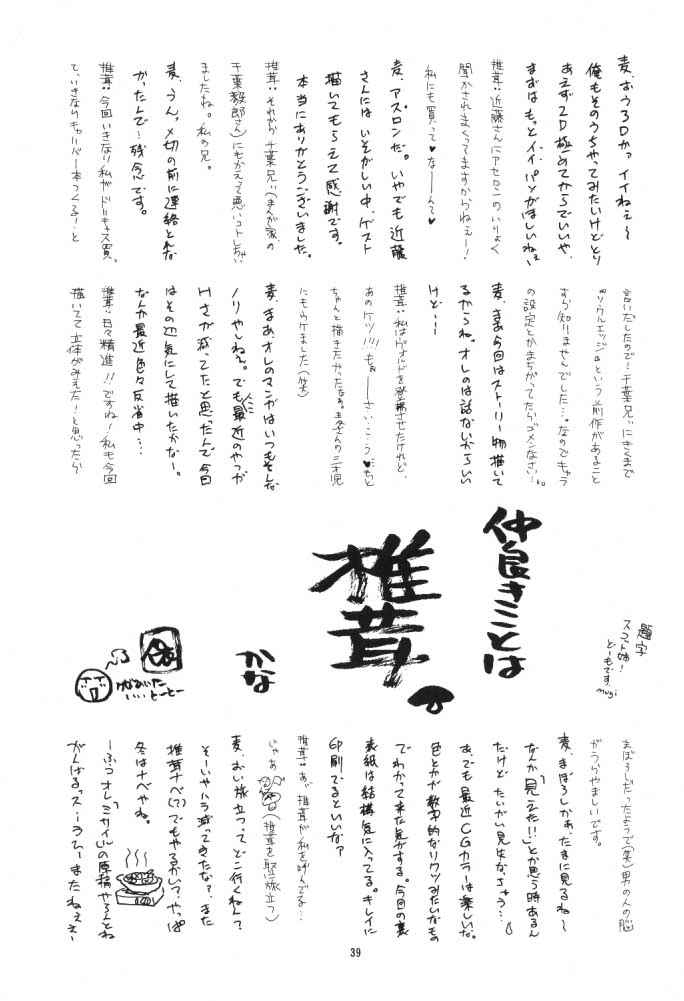 麦、おう3Dかっ イイねぇ～
俺もそのうちやってみたいけどとり
あえず2D極めてからでいいや。
まずはもっとイイパソがほしいねぇ
椎茸:近藤さんにアセロンのいりょく
聞かされまくってますからねぇー!
私にも買って♥なーーんて♥
麦、アスロンだ。いやでも近藤
さんにはいそがしい中、ゲスト
描いてもらえて感謝です。
本当にありがとうございました。
椎茸:それから千葉兄ぃ(まんが家の
千葉毅郎さん)にもかえて悪いコトしちゃい
ましたね。私の兄。
麦、うん。〆切の前に連絡とれな
かったんで…残念です。
椎茸:今回いきなり私がドリキャス買っ
て、いきなりキャリバー本つくる!と
言いだしたので…千葉兄ぃにきくまで
という前作があること
すら知りませんでした…。なのでキャラ
の設定とかまちがってたらゴメンなさい。
麦、まあ今回はストーリー物描いて
るからね。オレのは話ないからいい
けど…
椎茸:私はヴォルドを登場させたけれど、
あのケツ!!!もぉーーさいこう♥もと
ちゃんと描きたかったなぁ。
にもウケました(笑)
麦、まあ、オレのマンガはいつもそんな
ノリやしねぇ。でも最近のやつが
Hさが減ってたと思ったんで今回
はその辺気にして描いたかなー。
なんか最近色々反省中…
椎茸:日々精進!!ですね!私も今回
描いてて立体がみえた!と思ったら
仲良きことは
椎茸。
かな
題字
スコット姉!
どーもです。
mugi
まぼろしだったようで(笑)男の人の脳
がうらやましいです。
麦、まぼろしかぁ、たまに見るね～
なんか「見えた!!」とか思う時あるん
だけど、たいがい見失なちゃう…
あ、でも最近CGカラーは楽しいな。
色とかが数字的なリクツみたいなもの
でわかって来た気がする。今回の裏
表紙は結構気に入ってる。キレイに
印刷でるといいな?
椎茸:あっ、椎茸が私を呼んでる…
じゃあ(椎茸を堅に旅立つ)
麦、おい旅立つってどこ行くねん?
そーいやハラ減ってきたな?、また
椎茸ナベ(?)でもやるかい?やっぱ
冬はナベやね。
ーふつオレ「ミサイル」の原稿やろとね
がんばるっス…うひーまたねぇぇ～
39